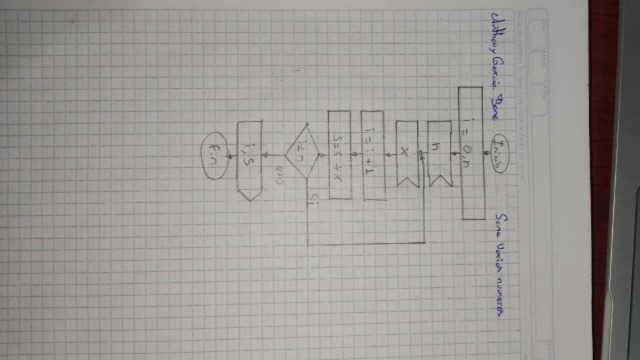 Anthony Garcia
Suma varios numeros
Inicio
i = 0, n
n
x
i = i + 1
s = s + x
i < n
Si
no
i, s
fin